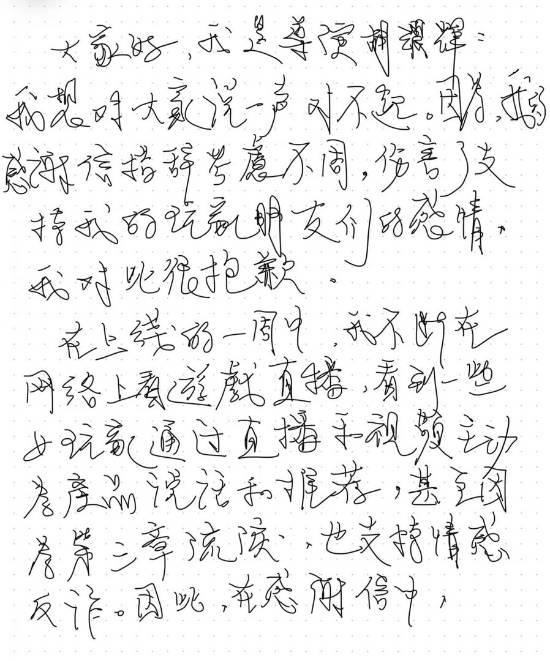 大家好，我是導演胡課輝：
我想对大家说一声对不起。因为，我的
感謝信措辞考慮不周，伤害了支
持我的玩家朋友们的感情，
我对此很抱歉。
在上线的一周中，我不断在
网络上看遊戲直播，看到一些
女玩家通过直播和視頻主动
为產品说话和推荐，甚至因
为第三章流淚，也支持情感
反诈。因此，在感謝信中，